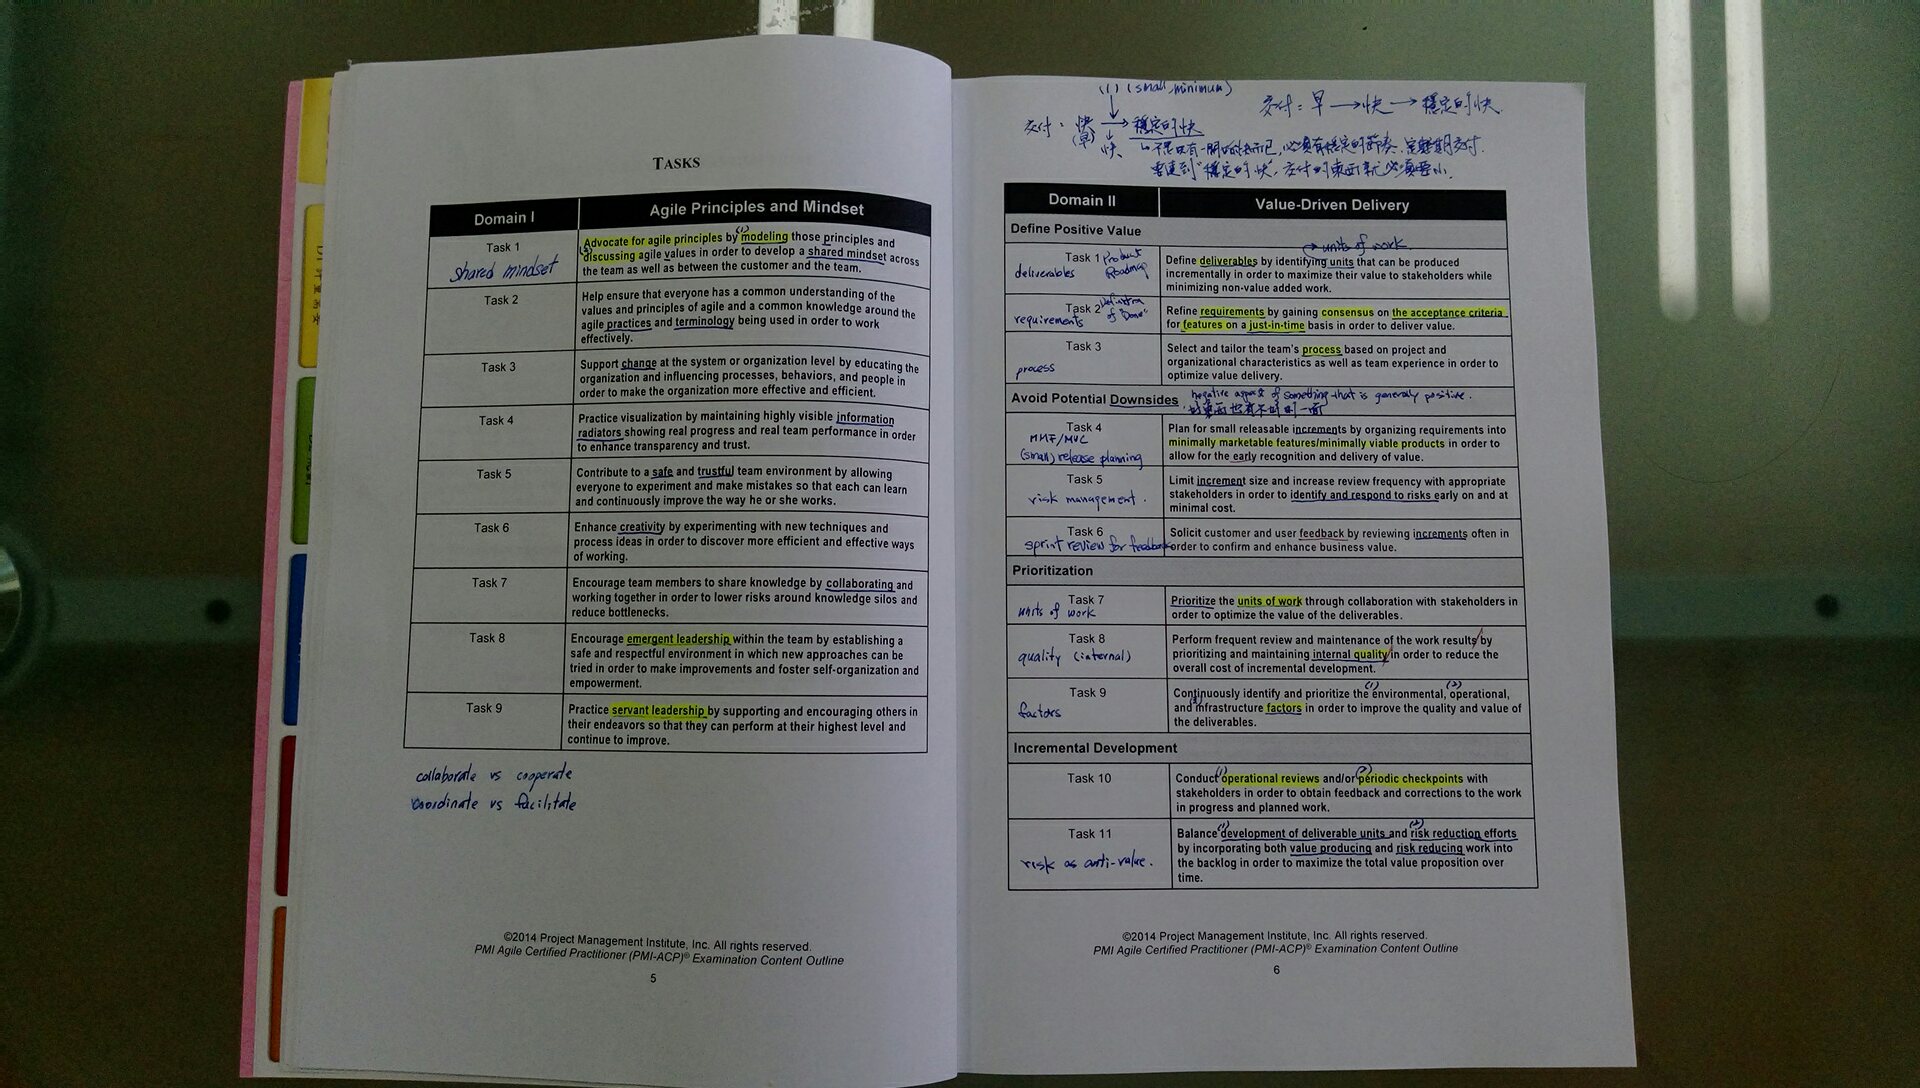 TASKS
Domain I
Agile Principles and Mindset
Task 1
shared mindset
(1)
Advocate for agile principles by modeling those principles and
(2)
discussing agile values in order to develop a shared mindset across
the team as well as between the customer and the team.
Task 2
Help ensure that everyone has a common understanding of the
values and principles of agile and a common knowledge around the
agile practices and terminology being used in order to work
effectively.
Task 3
Support change at the system or organization level by educating the
organization and influencing processes, behaviors, and people in
order to make the organization more effective and efficient.
Task 4
Practice visualization by maintaining highly visible information
radiators showing real progress and real team performance in order
to enhance transparency and trust.
Task 5
Contribute to a safe and trustful team environment by allowing
everyone to experiment and make mistakes so that each can learn
and continuously improve the way he or she works.
Task 6
Enhance creativity by experimenting with new techniques and
process ideas in order to discover more efficient and effective ways
of working.
Task 7
Encourage team members to share knowledge by collaborating and
working together in order to lower risks around knowledge silos and
reduce bottlenecks.
Task 8
Encourage emergent leadership within the team by establishing a
safe and respectful environment in which new approaches can be
tried in order to make improvements and foster self-organization and
empowerment.
Task 9
Practice servant leadership by supporting and encouraging others in
their endeavors so that they can perform at their highest level and
continue to improve.
collaborate vs cooperate
coordinate vs facilitate
©2014 Project Management Institute, Inc. All rights reserved.
PMI Agile Certified Practitioner (PMI-ACP)® Examination Content Outline
5
(1) (small, minimum)
交付：快 → 穩定的快
(早)
快
交付：早 → 快 → 穩定的快.
不是只有一開始快而已，必須有穩定的節奏、定期交付.
要達到"穩定的快"，交付的東西就必須要小.
Domain II
Value-Driven Delivery
Define Positive Value
→ units of work
Task 1
Product Roadmap
deliverables
Define deliverables by identifying units that can be produced
incrementally in order to maximize their value to stakeholders while
minimizing non-value added work.
Task 2
Definition of "Done"
requirements
Refine requirements by gaining consensus on the acceptance criteria
for features on a just-in-time basis in order to deliver value.
Task 3
process
Select and tailor the team's process based on project and
organizational characteristics as well as team experience in order to
optimize value delivery.
Avoid Potential Downsides
negative aspect of something that is generally positive.
好東西也有不好的一面
Task 4
MMF/MVC
(small) release planning
Plan for small releasable increments by organizing requirements into
minimally marketable features/minimally viable products in order to
allow for the early recognition and delivery of value.
Task 5
risk management.
Limit increment size and increase review frequency with appropriate
stakeholders in order to identify and respond to risks early on and at
minimal cost.
Task 6
sprint review for feedback
Solicit customer and user feedback by reviewing increments often in
order to confirm and enhance business value.
Prioritization
Task 7
units of work
Prioritize the units of work through collaboration with stakeholders in
order to optimize the value of the deliverables.
Task 8
quality (internal)
Perform frequent review and maintenance of the work results by
prioritizing and maintaining internal quality in order to reduce the
overall cost of incremental development.
Task 9
factors
(1) (2)
Continuously identify and prioritize the environmental, operational,
(3)
and infrastructure factors in order to improve the quality and value of
the deliverables.
Incremental Development
Task 10
(1) (2)
Conduct operational reviews and/or periodic checkpoints with
stakeholders in order to obtain feedback and corrections to the work
in progress and planned work.
Task 11
risk as anti-value.
(1) (2)
Balance development of deliverable units and risk reduction efforts
by incorporating both value producing and risk reducing work into
the backlog in order to maximize the total value proposition over
time.
©2014 Project Management Institute, Inc. All rights reserved.
PMI Agile Certified Practitioner (PMI-ACP)® Examination Content Outline
6